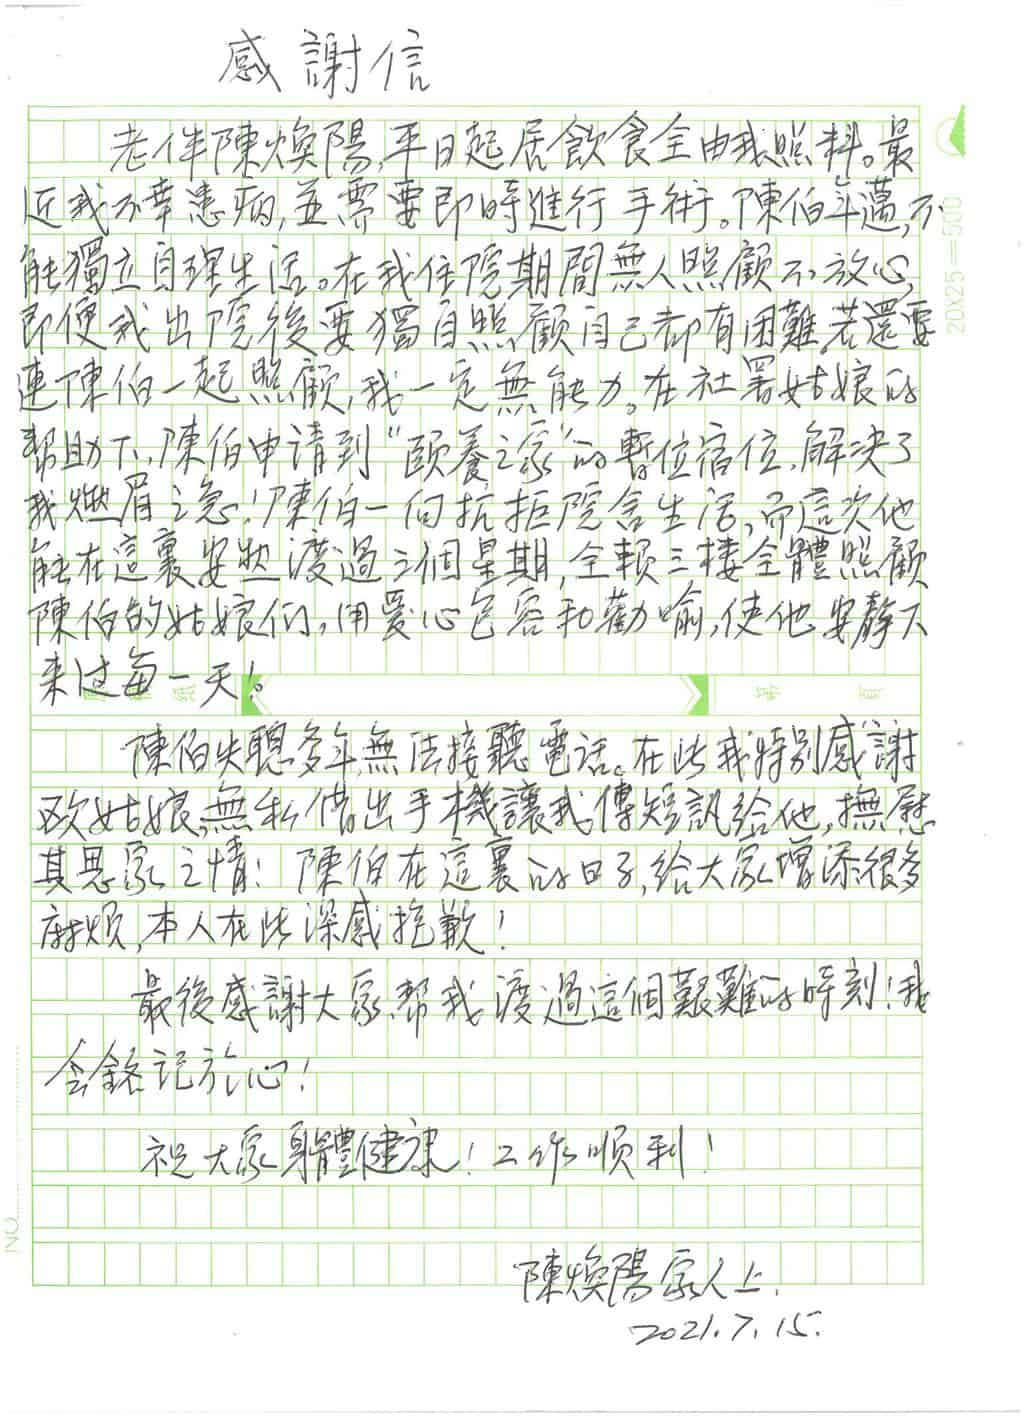 感謝信
老伴陳煥陽,平日起居飲食全由我照料。最
近我不幸患病,並需要即時進行手術。陳伯年邁,不
能獨立自理生活。在我住院期間無人照顧不放心,
即便我出院後要獨自照顧自己都有困難,若還要
連陳伯一起照顧,我一定無能力。在社署姑娘的
帮助下,陳伯申请到“頤養之家”的暫位宿位,解决了
我燃眉之急!陳伯一向抗拒院舍生活,而這次他
能在這裏安然渡過三個星期,全賴三樓全體照顧
陳伯的姑娘们,用愛心包容和勸喻,使他安靜下
来过每一天!。
陳伯失聰多年,無法接聽電話。在此我特别感謝
欧姑娘,無私借出手機讓我傳短訊給他,撫慰
其思家之情!陳伯在這裏的日子,給大家增添很多
麻煩,本人在此深感抱歉!
最後感謝大家帮我渡過這個艱難的時刻!我
会銘记於心!
祝大家身體健康!工作順利!
陳煥陽家人上.
2021.7.15.
20×25=500
NO.